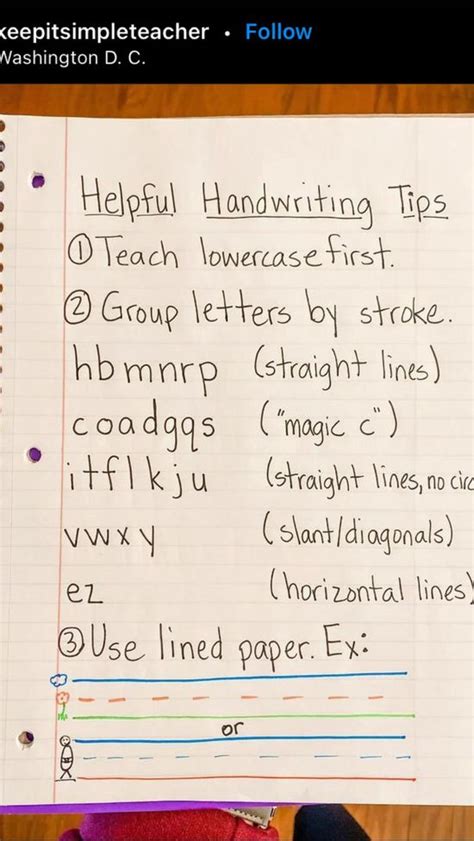 keepitsimpleteacher • Follow
Washington D. C.
Helpful Handwriting Tips
① Teach lowercase first.
② Group letters by stroke.
hbmnrp (straight lines)
coadgqs ("magic c")
itflkju (straight lines, no circ
vwxy (slant/diagonals)
ez (horizontal lines)
③ Use lined paper. Ex:
or